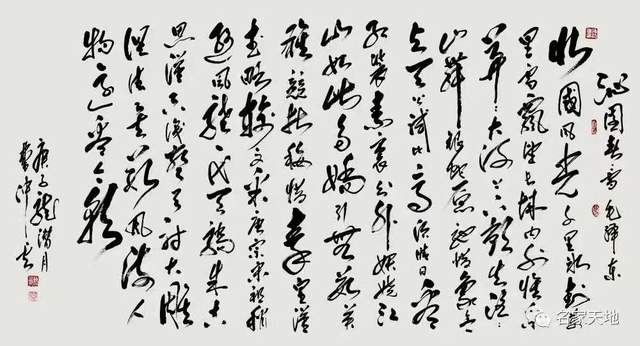 沁園春雪 毛泽东
北國风光千里冰封万
里雪飘望长城内外惟余
莽莽大河上下顿失滔滔
山舞银蛇原驰蜡象欲
与天公试比高须晴日看
红装素裹分外妖娆江
山如此多娇引无数英
雄竞折腰惜秦皇汉
武略输文采唐宗宋祖稍
逊风骚一代天骄成吉
思汗只识弯弓射大雕
俱往矣数风流人
物还看今朝
庚子龙潜月
名家天地